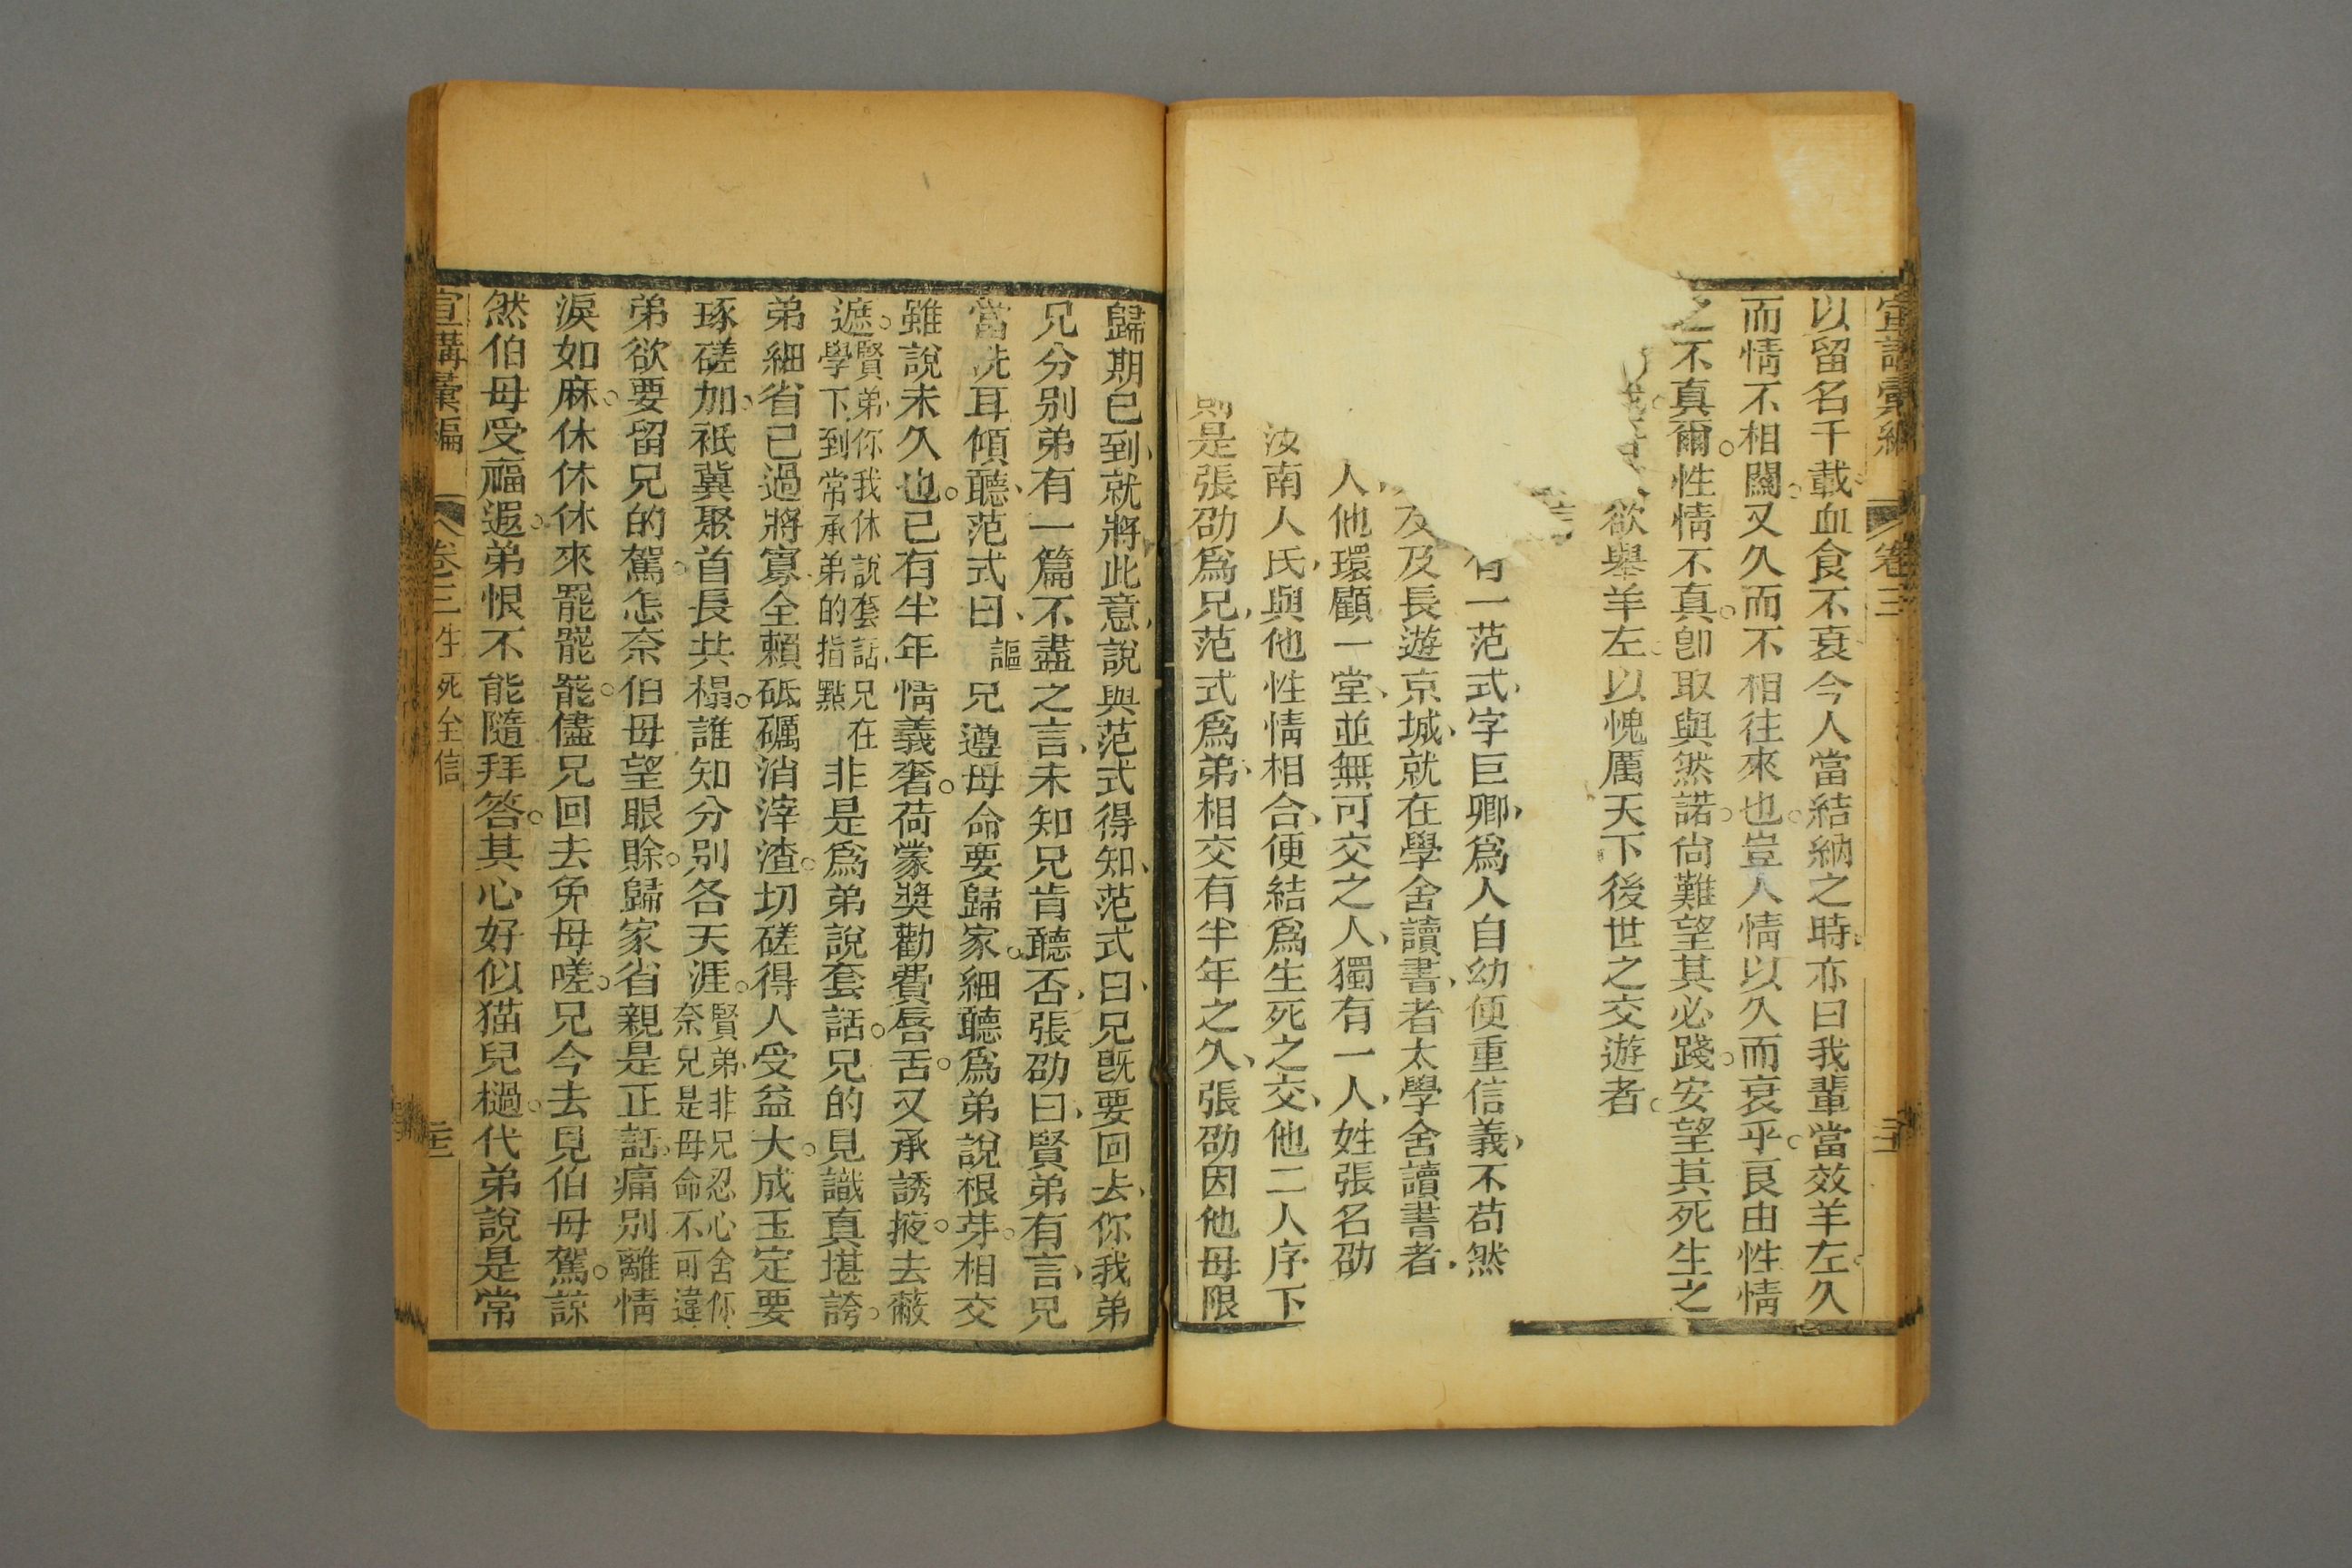 宣講彙編 卷三
以留名千載血食不衰今人當結納之時亦曰我輩當效羊左久
而情不相關又久而不相往來也豈人情以久而衰乎良由性情
之不真爾性情不真卽取與然諾尙難望其必踐安望其死生之
欲舉羊左以愧厲天下後世之交遊者
一范式字巨卿爲人自幼便重信義不苟然
及長遊京城就在學舍讀書者太學舍讀書者
人他環顧一堂並無可交之人獨有一人姓張名劭
汝南人氏與他性情相合便結爲生死之交他二人序下
則是張劭爲兄范式爲弟相交有半年之久張劭因他母限
歸期已到就將此意說與范式得知范式曰兄旣要回去你我弟
兄分別弟有一篇不盡之言未知兄肯聽否張劭曰賢弟有言兄
當洗耳傾聽范式曰 謳 兄遵母命要歸家細聽爲弟說根芽相交
雖說未久也已有半年情義奢荷蒙獎勸費唇舌又承誘掖去蔽
遮 賢弟你我休說套話兄在學下到常承弟的指點 非是爲弟說套話兄的見識真堪誇
弟細省己過將寡全賴砥礪消滓渣切磋得人受益大成玉定要
琢磋加衹冀聚首長共榻誰知分別各天涯 賢弟非兄忍心舍你奈兄是母命不可違
弟欲要留兄的駕怎奈伯母望眼賒歸家省親是正話痛別離情
淚如麻休休休來罷罷罷儘兄回去免母嗟兄今去見伯母駕諒
然伯母受福遐弟恨不能隨拜答其心好似猫兒檛代弟說是常
宣講彙編 卷三 生死全信 三